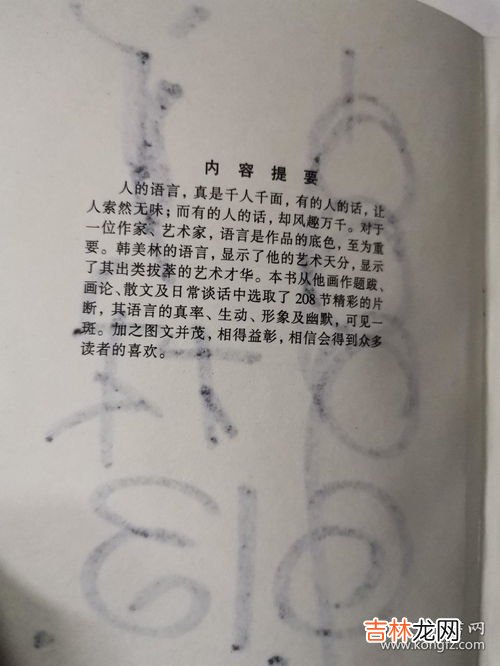 内容提要
人的语言，真是千人千面，有的人的话，让
人索然无味；而有的人的话，却风趣万千。对于
一位作家、艺术家，语言是作品的底色，至为重
要。韩美林的语言，显示了他的艺术天分，显示
了其出类拔萃的艺术才华。本书从他画作题跋、
画论、散文及日常谈话中选取了208节精彩的片
断，其语言的真率、生动、形象及幽默，可见一
斑。加之图文并茂，相得益彰，相信会得到众多
读者的喜欢。
吉林龙网
www.kongfz.com